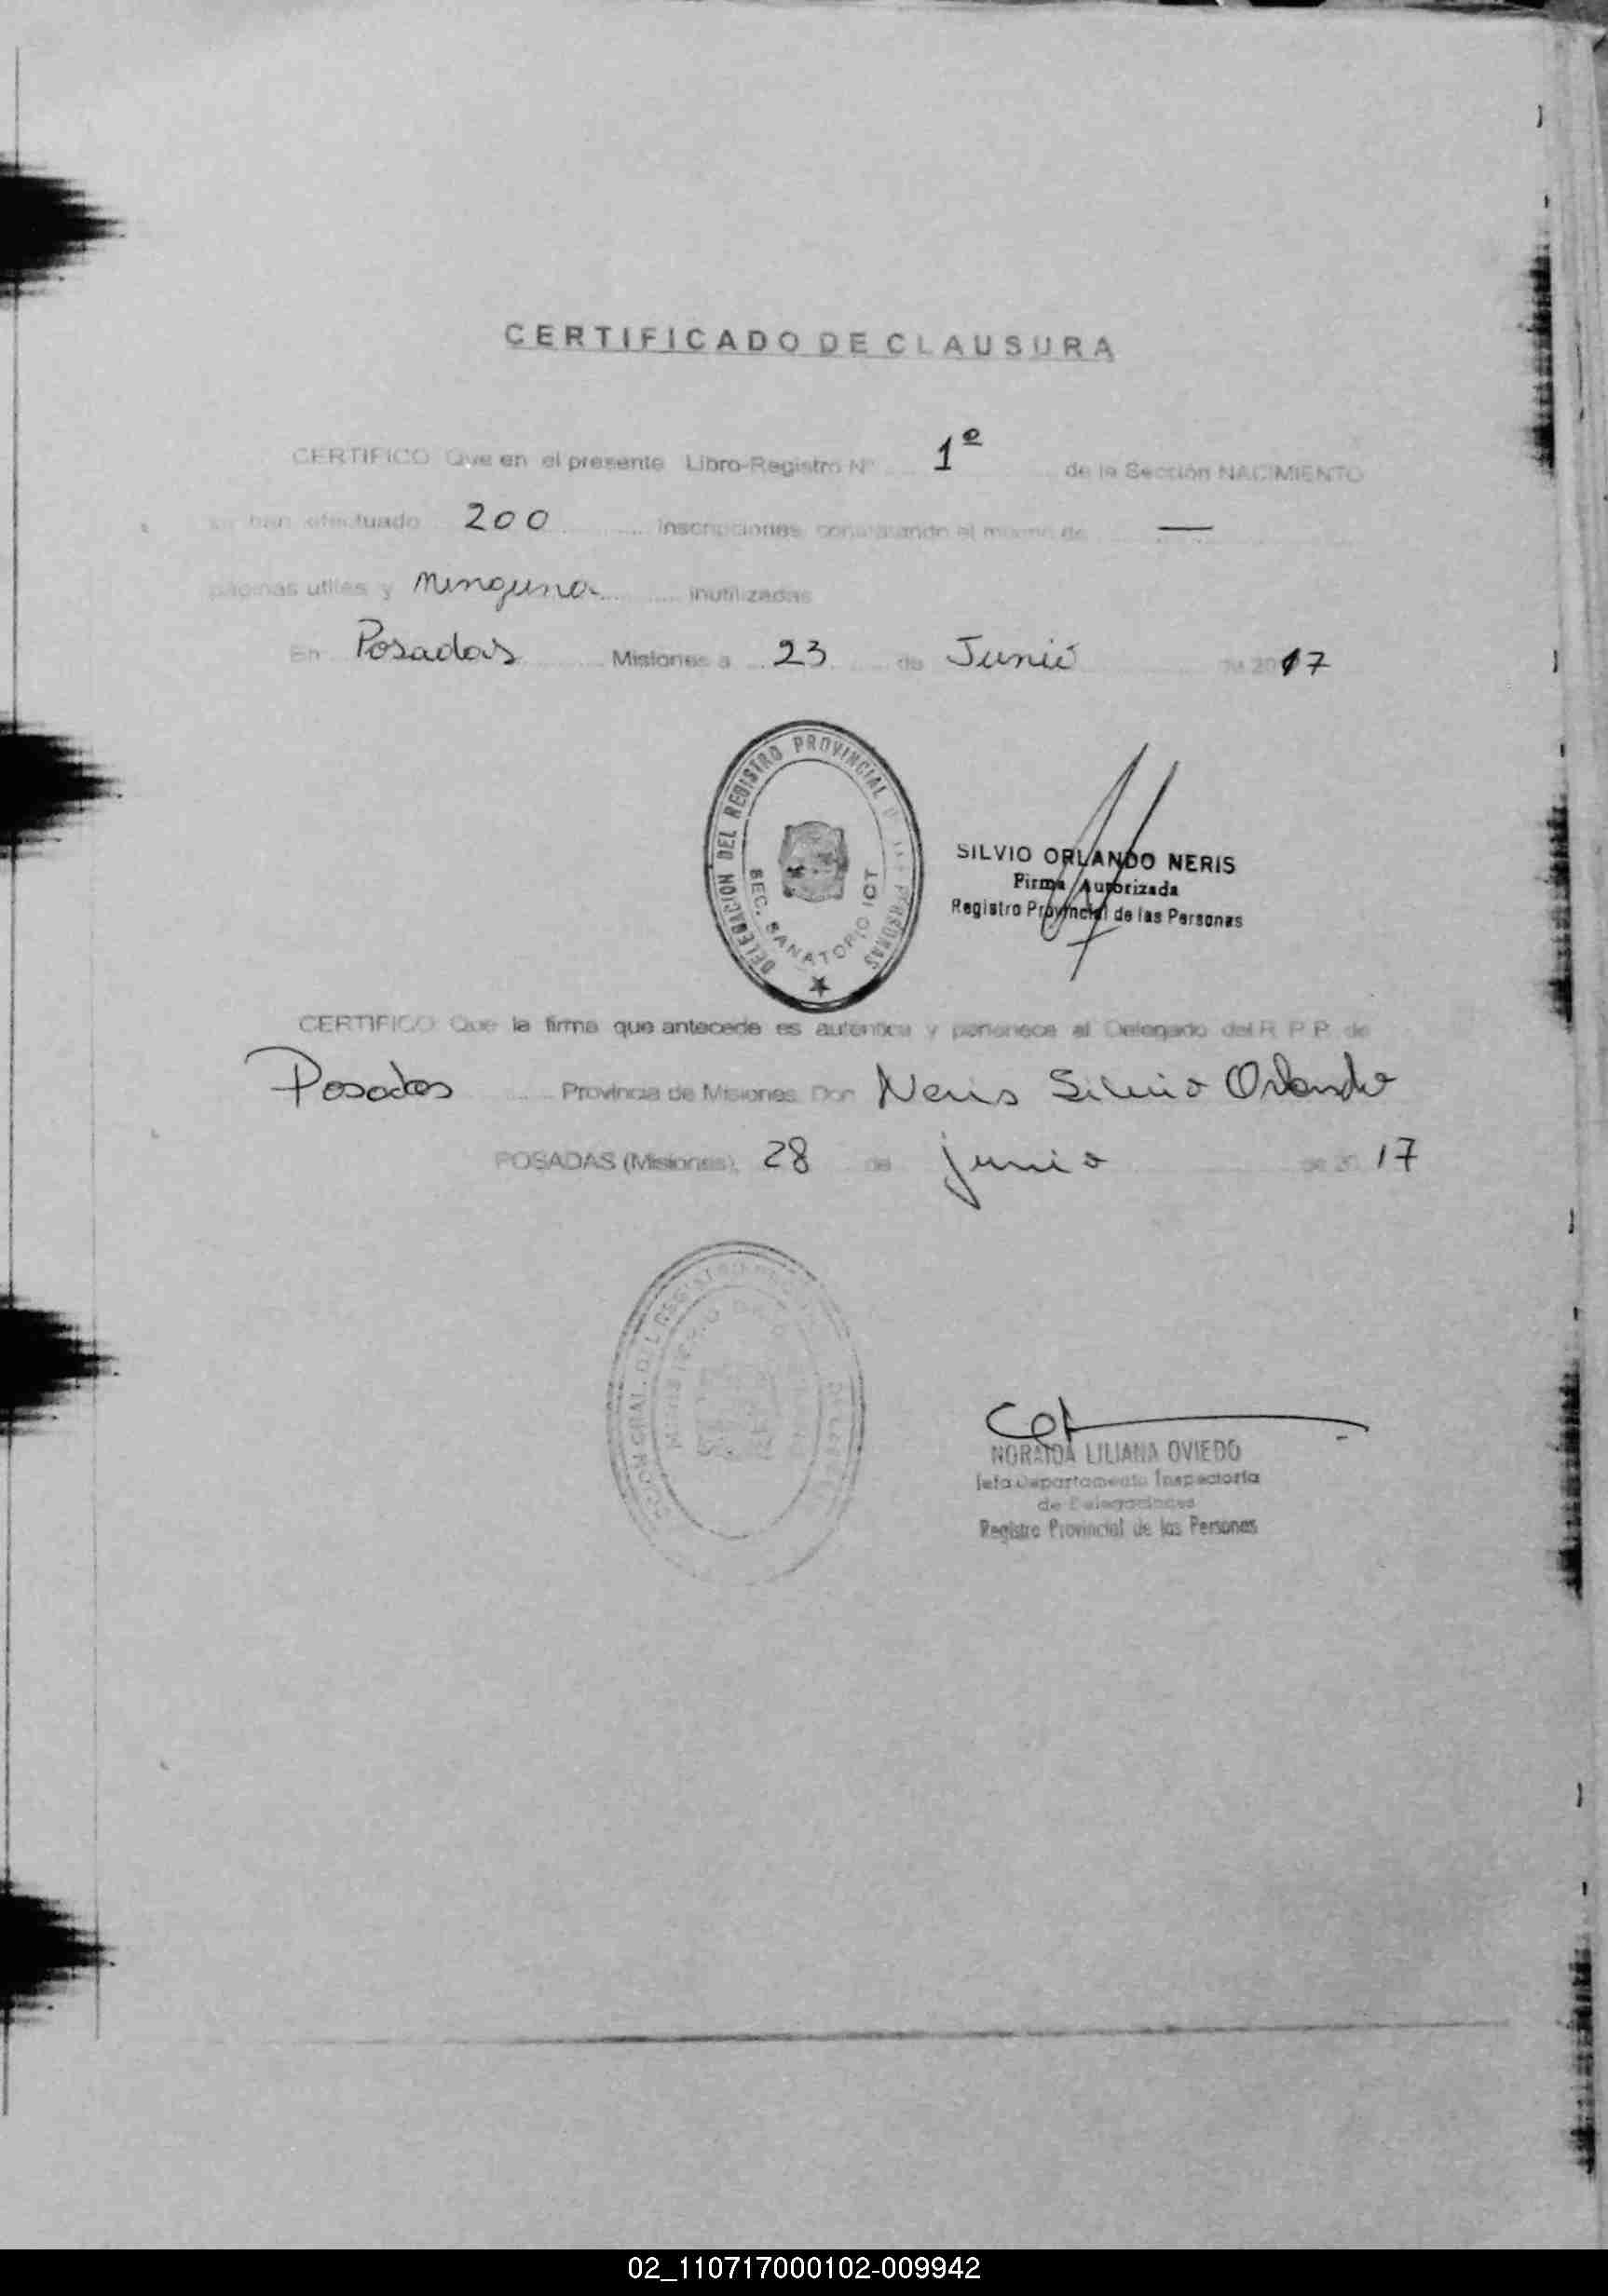 CERTIFICADO DE CLAUSURA
CERTIFICO Que en el presente Libro-Registro Nº 1º de la Sección NACIMIENTO
se han efectuado 200 inscripciones constatando el mismo de —
páginas utiles y ninguna inutilizadas
En Posadas Misiones a 23 de Junio de 2017
DELEGACION DEL REGISTRO PROVINCIAL DE LAS PERSONAS
SEC. SANATORIO IOT
SILVIO ORLANDO NERIS
Firma Autorizada
Registro Provincial de las Personas
CERTIFICO Que la firma que antecede es auténtica y pertenece al Delegado del R. P. P. de
Posadas Provincia de Misiones Don Neris Silvio Orlando
POSADAS (Misiones), 28 de junio de 20 17
NORAIDA LILIANA OVIEDO
Jefa Departamento Inspectoría
de Delegaciones
Registro Provincial de las Personas
02_110717000102-009942